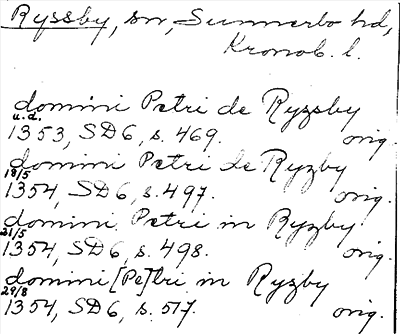 Ryssby, sn, Sunnerbo hd,
Kronob. l.
domini Petri de Ryzsby
u.d.
1353, SD6, s. 469. orig.
domini Petri de Ryzby
18/5
1354, SD6, s. 497. orig.
domini Petri in Ryzby
21/5
1354, SD6, s. 498. orig.
domini [Pe]tri in Ryzby
29/8
1354, SD6, s. 517. orig.